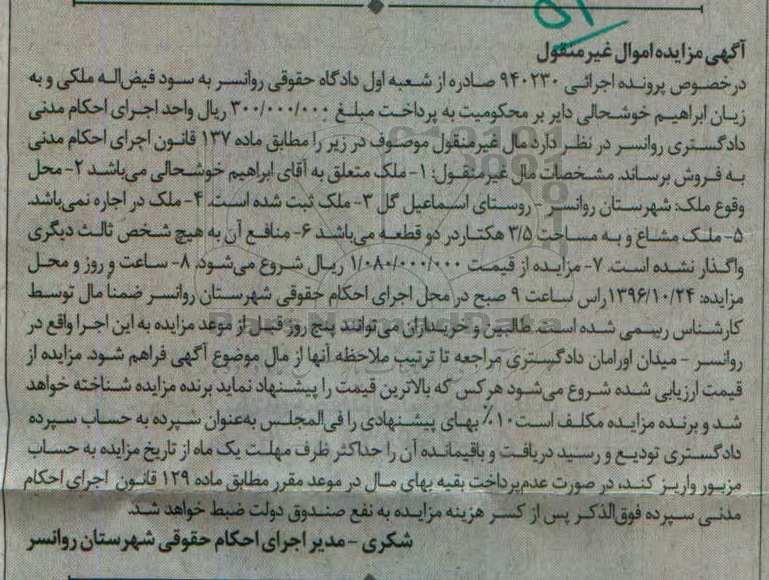 ۵۲
آگهی مزایده اموال غیرمنقول
درخصوص پرونده اجرائی ۹۴۰۲۳۰ صادره از شعبه اول دادگاه حقوقی روانسر به سود فیض‌اله ملکی و به
زیان ابراهیم خوشحالی دایر بر محکومیت به پرداخت مبلغ ۳۰۰/۰۰۰/۰۰۰ ریال واحد اجرای احکام مدنی
دادگستری روانسر در نظر دارد مال غیرمنقول موصوف در زیر را مطابق ماده ۱۳۷ قانون اجرای احکام مدنی
به فروش برساند. مشخصات مال غیرمنقول: ۱- ملک متعلق به آقای ابراهیم خوشحالی می‌باشد ۲- محل
وقوع ملک: شهرستان روانسر - روستای اسماعیل گل ۳- ملک ثبت شده است. ۴- ملک در اجاره نمی‌باشد.
۵- ملک مشاع و به مساحت ۳/۵ هکتار در دو قطعه می‌باشد ۶- منافع آن به هیچ شخص ثالث دیگری
واگذار نشده است. ۷- مزایده از قیمت ۱/۰۸۰/۰۰۰/۰۰۰ ریال شروع می‌شود. ۸- ساعت و روز و محل
مزایده: ۱۳۹۶/۱۰/۲۴ راس ساعت ۹ صبح در محل اجرای احکام حقوقی شهرستان روانسر ضمناً مال توسط
کارشناس رسمی شده است. طالبین و خریداران می‌توانند پنج روز قبل از موعد مزایده به این اجرا واقع در
روانسر - میدان اورامان دادگستری مراجعه تا ترتیب ملاحظه آنها از مال موضوع آگهی فراهم شود. مزایده از
قیمت ارزیابی شده شروع می‌شود هر کس که بالاترین قیمت را پیشنهاد نماید برنده مزایده شناخته خواهد
شد و برنده مزایده مکلف است ۱۰٪ بهای پیشنهادی را فی‌المجلس به‌عنوان سپرده به حساب سپرده
دادگستری تودیع و رسید دریافت و باقیمانده آن را حداکثر ظرف مهلت یک ماه از تاریخ مزایده به حساب
مزبور واریز کند، در صورت عدم‌پرداخت بقیه بهای مال در موعد مقرر مطابق ماده ۱۲۹ قانون اجرای احکام
مدنی سپرده فوق‌الذکر پس از کسر هزینه مزایده به نفع صندوق دولت ضبط خواهد شد.
شکری - مدیر اجرای احکام حقوقی شهرستان روانسر